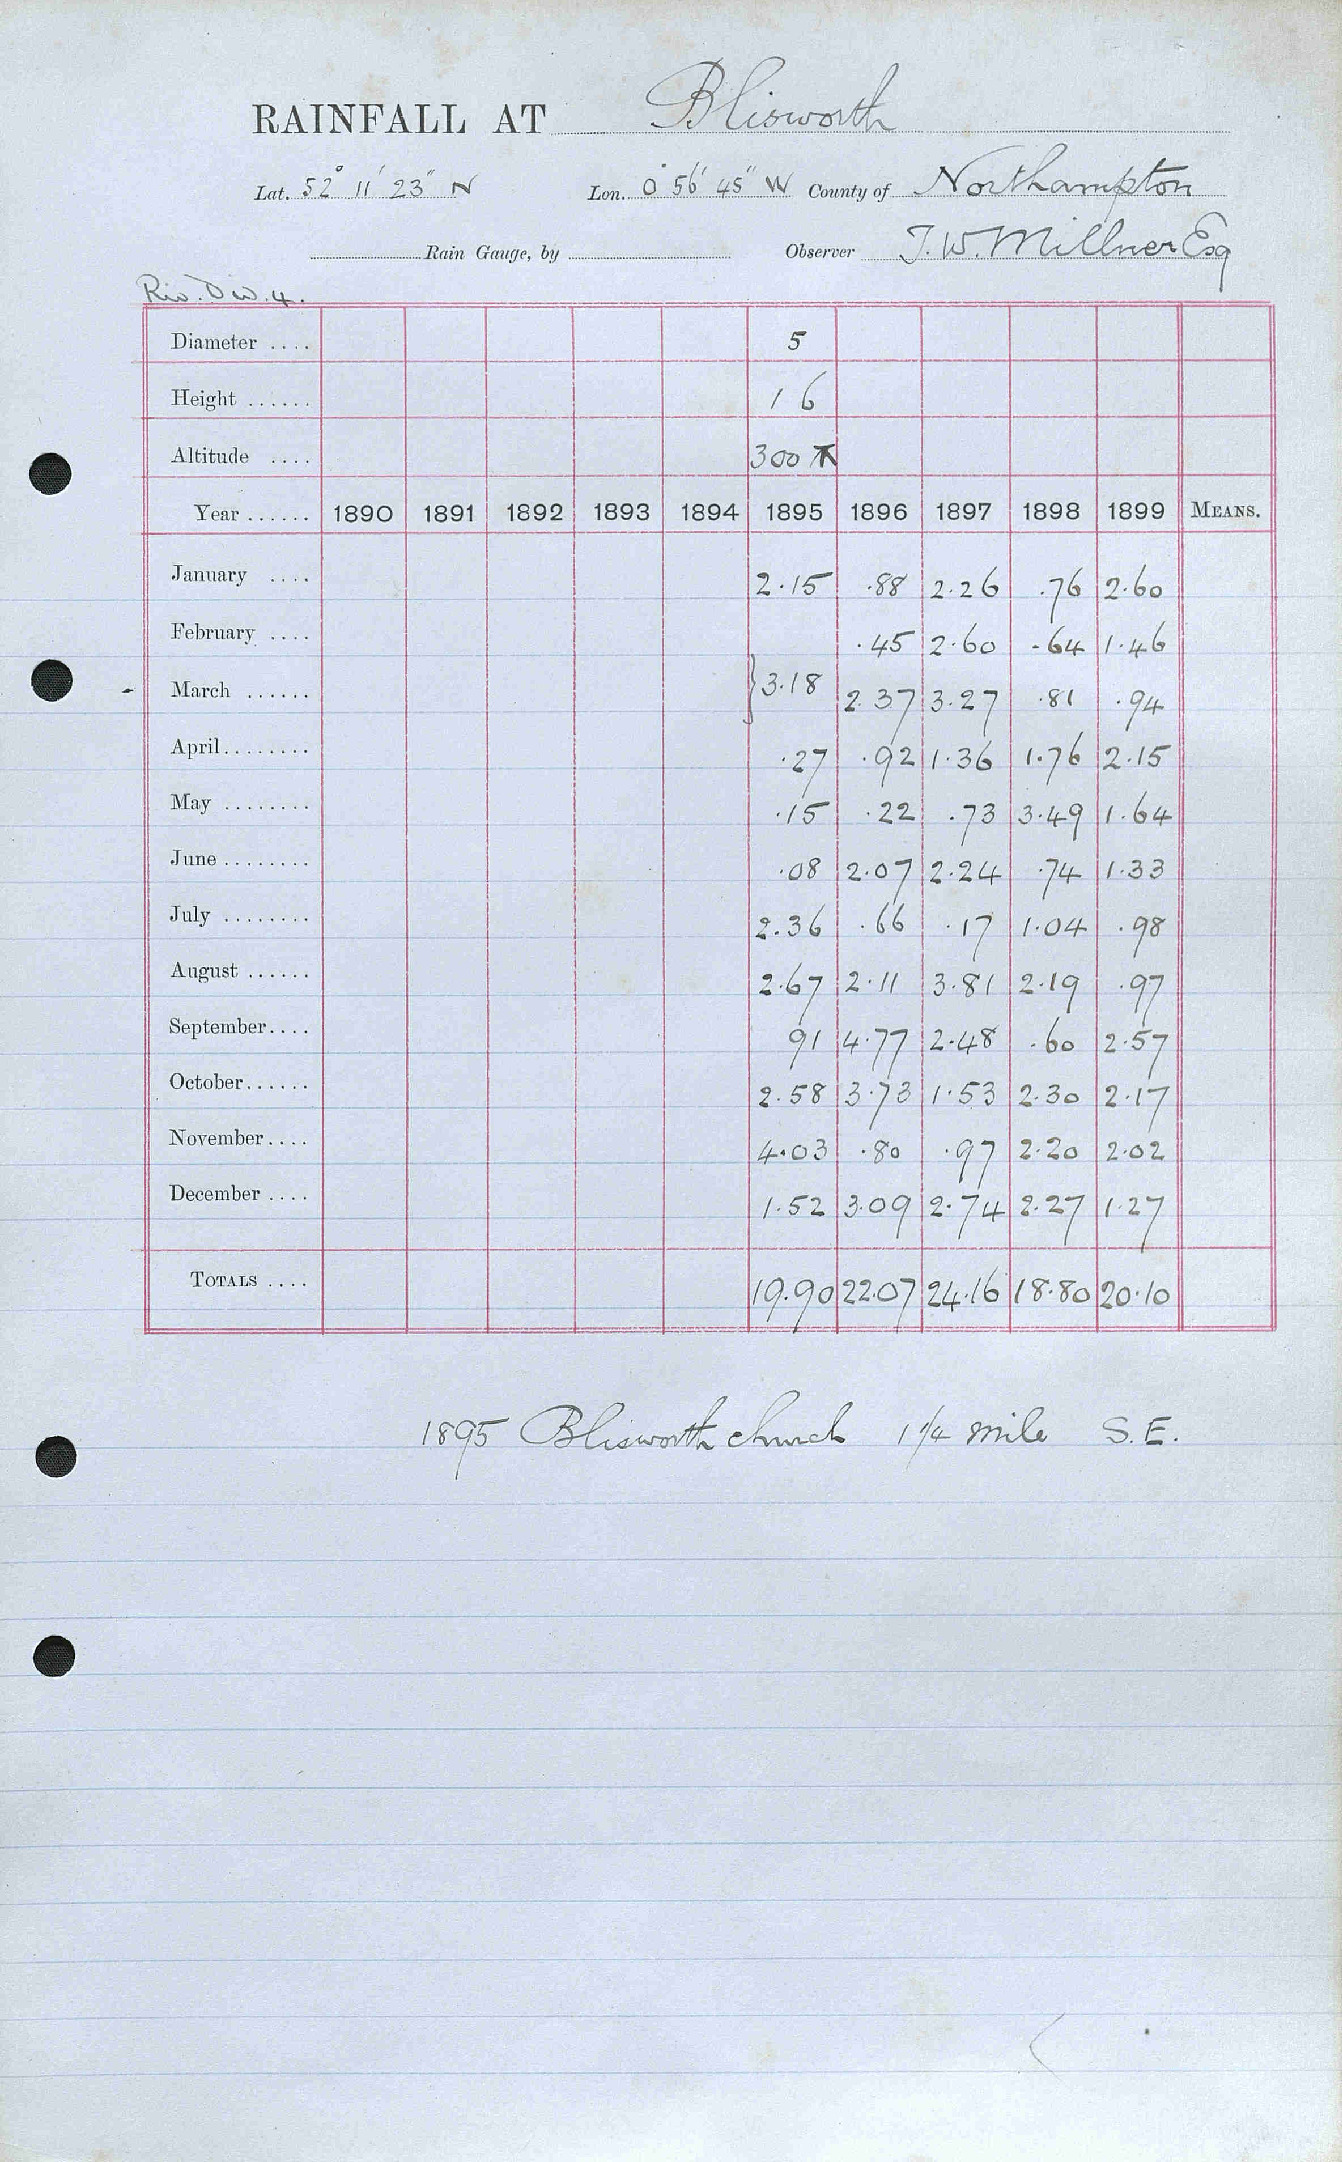 RAINFALL AT Blisworth
Lat. 52° 11' 23" N Lon. 0° 56' 45" W County of Northampton
Rain Gauge, by Observer J. W. Millner Esq
Riv. D W. 4.
Diameter .... 5
Height ...... 1 6
Altitude .... 300
Year ...... 1890 1891 1892 1893 1894 1895 1896 1897 1898 1899 MEANS.
January .... 2.15 .88 2.26 .76 2.60
February .... .45 2.60 .64 1.46
March ...... }3.18 2.37 3.27 .81 .94
April ........ .27 .92 1.36 1.76 2.15
May ........ .15 .22 .73 3.49 1.64
June ........ .08 2.07 2.24 .74 1.33
July ........ 2.36 .66 .17 1.04 .98
August ...... 2.67 2.11 3.81 2.19 .97
September .... 91 4.77 2.48 .60 2.57
October ...... 2.58 3.73 1.53 2.30 2.17
November .... 4.03 .80 .97 2.20 2.02
December .... 1.52 3.09 2.74 2.27 1.27
TOTALS .... 19.90 22.07 24.16 18.80 20.10
1895 Blisworth church 1 1/4 mile S.E.